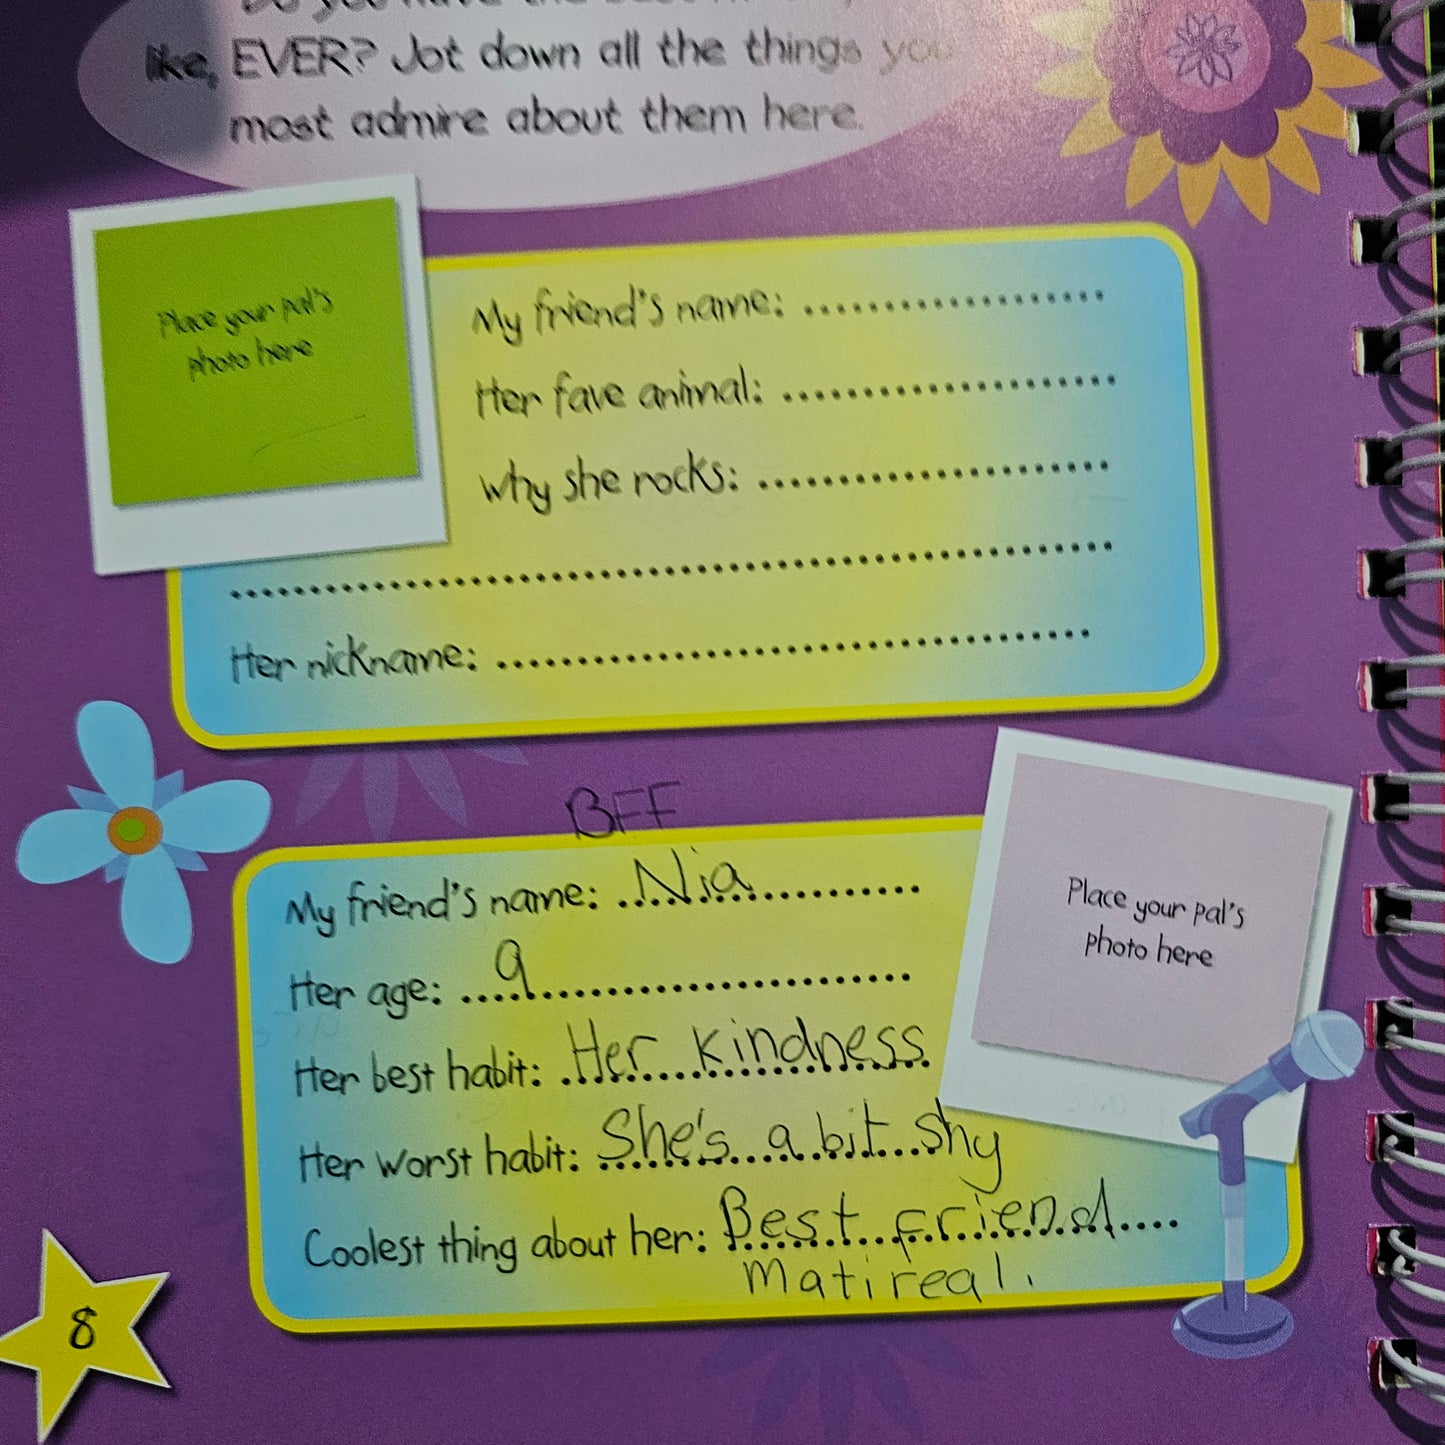 like, EVER? Jot down all the things you
most admire about them here.
Place your pal's
photo here
My friend's name:
Her fave animal:
Why she rocks:
Her nickname:
BFF
My friend's name: Nia
Her age: 9
Her best habit: Her kindness
Her worst habit: She's a bit shy
Coolest thing about her: Best friend
matireal.
Place your pal's
photo here
8